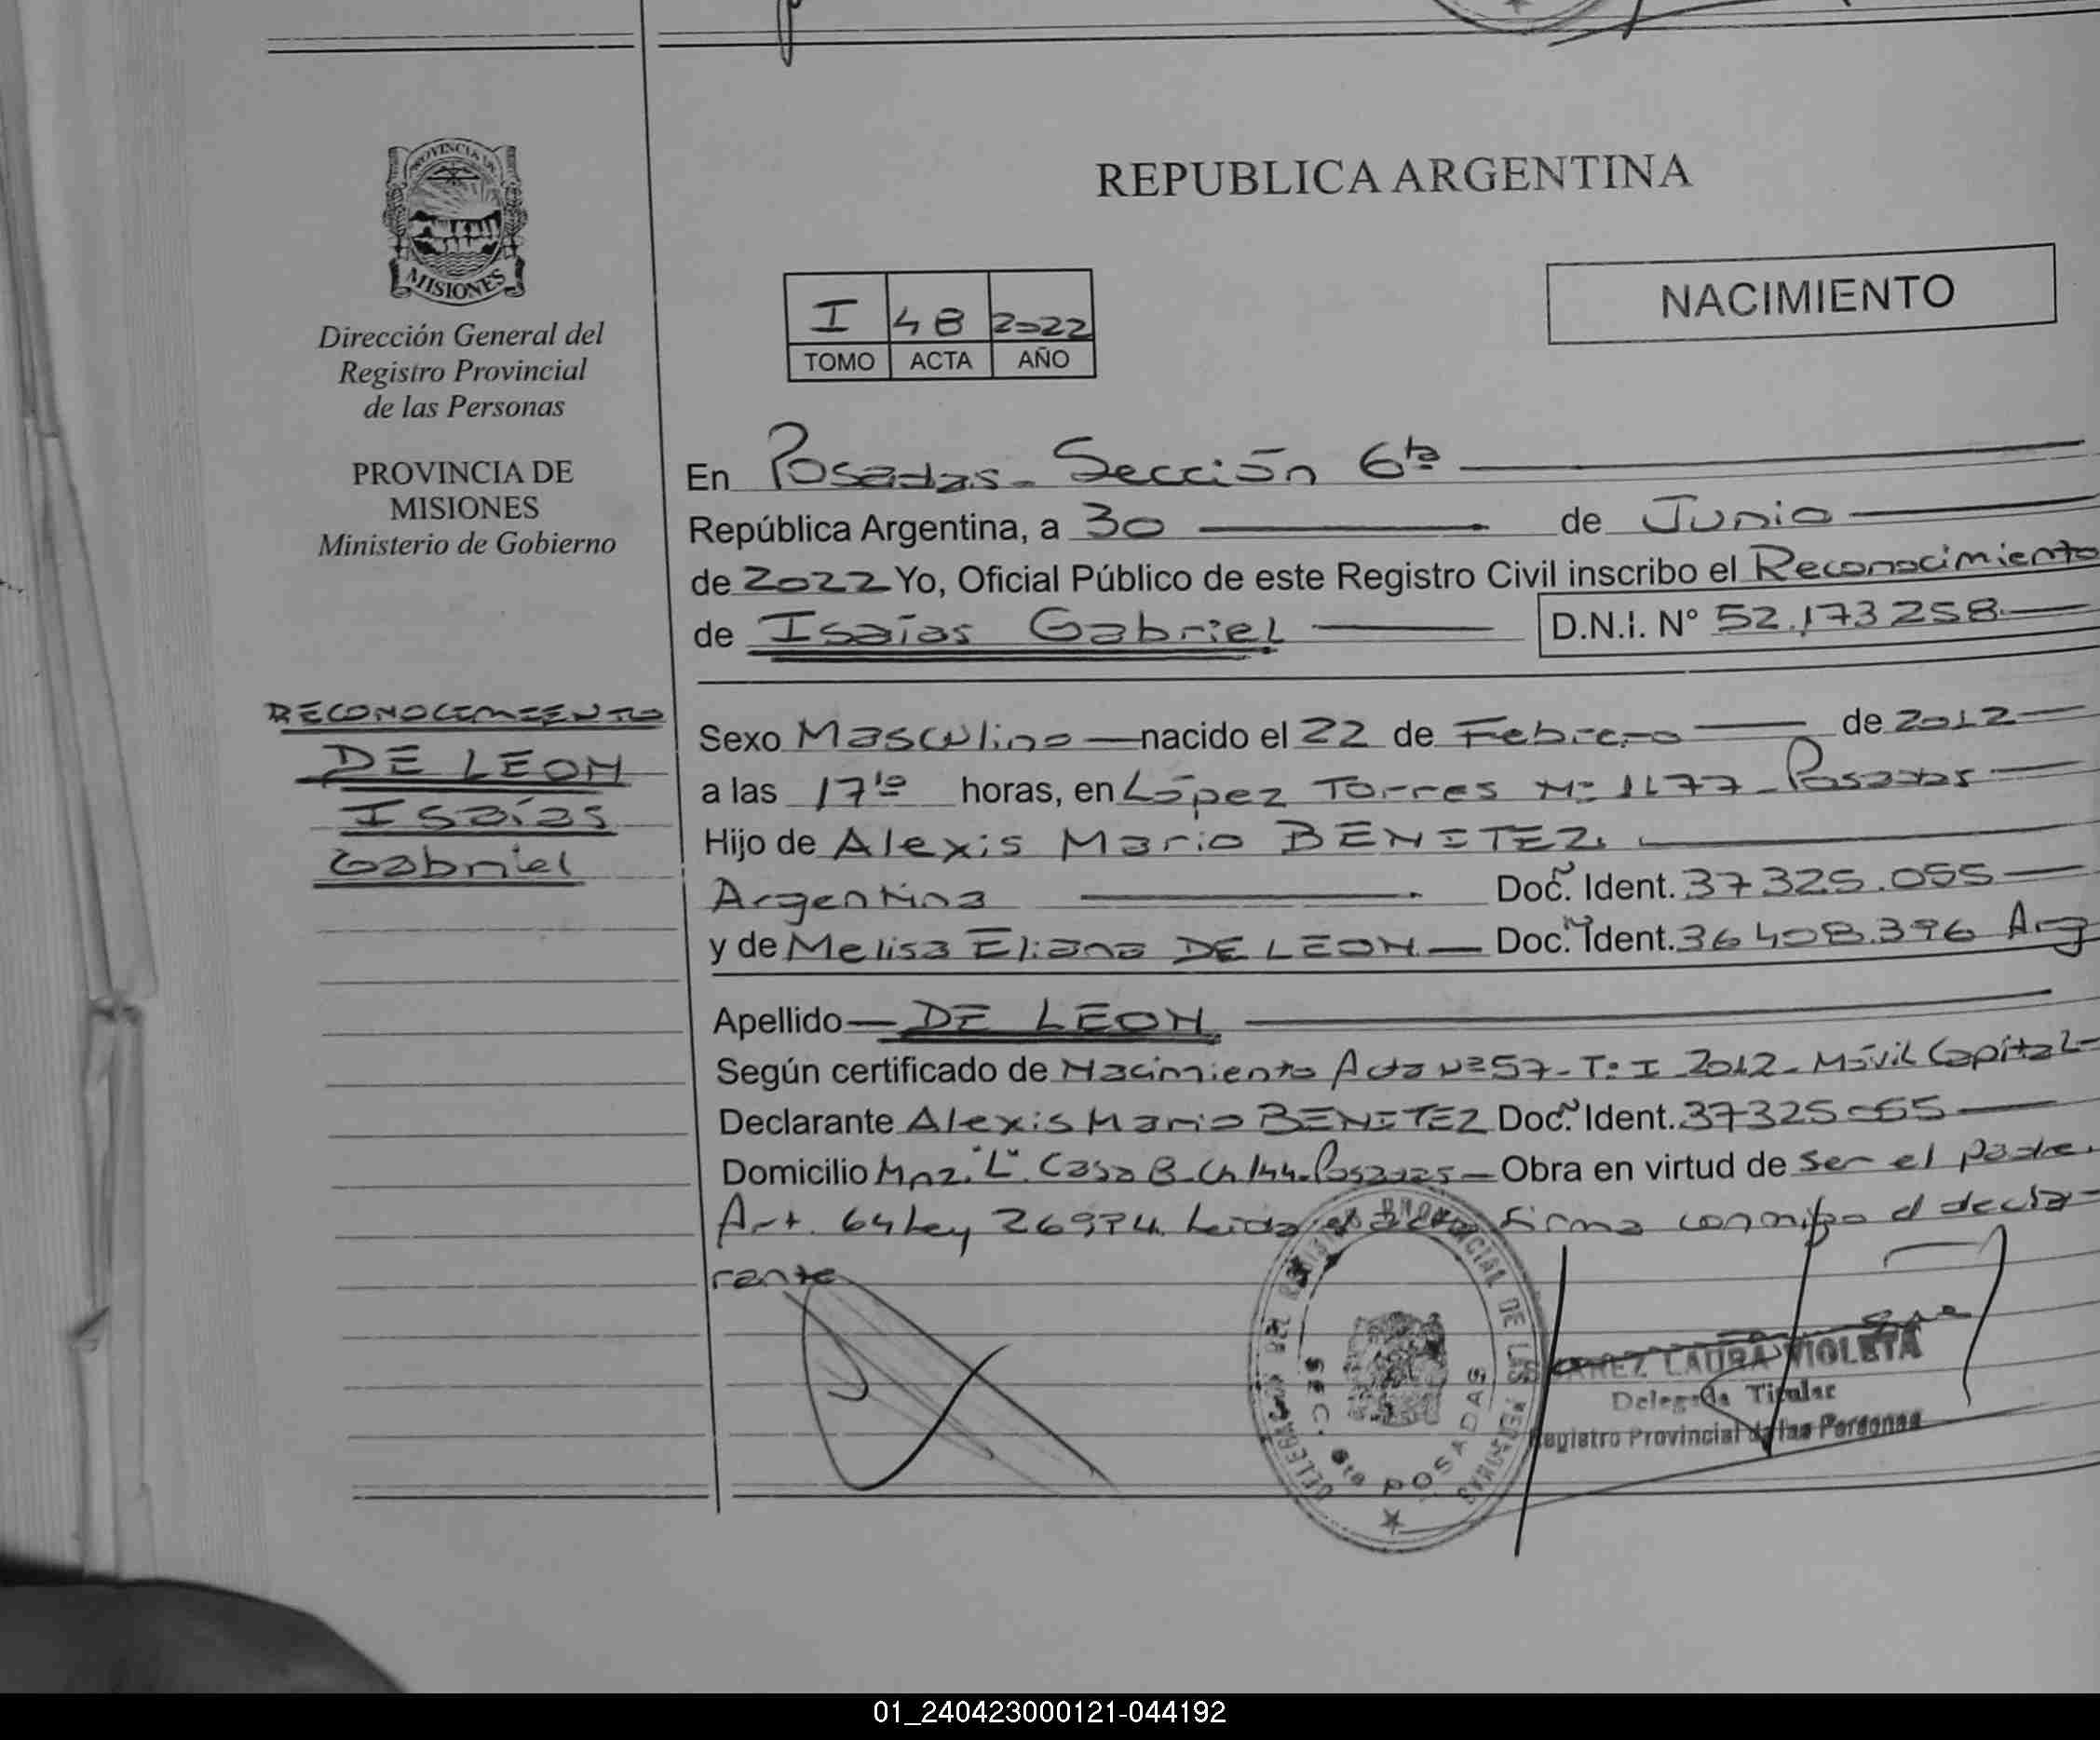 REPUBLICA ARGENTINA
NACIMIENTO
PROVINCIA DE
MISIONES
Dirección General del
Registro Provincial
de las Personas
PROVINCIA DE
MISIONES
Ministerio de Gobierno
I 48 2022
TOMO ACTA AÑO
En Posadas - Sección 6ta
República Argentina, a 30 de Junio
de 2022 Yo, Oficial Público de este Registro Civil inscribo el Reconocimiento
de Isaías Gabriel D.N.I. N° 52.173258
RECONOCIMIENTO
DE LEON
Isaías
Gabriel
Sexo Masculino nacido el 22 de Febrero de 2012
a las 17 horas, en López Torres Nº 1177 - Posadas
Hijo de Alexis Mario BENITEZ.
Argentina Doc. Ident. 37325.055
y de Melisa Eliana DE LEON Doc. Ident. 36408.396 Arg
Apellido DE LEON
Según certificado de Nacimiento Acta Nº 57 - Tº I 2012 - Móvil Capital
Declarante Alexis Mario BENITEZ Doc. Ident. 37325055
Domicilio Mnz. "L" Casa 8 Ch 144 - Posadas Obra en virtud de ser el padre.
Art. 64 Ley 26994. Leída el acta firma conmigo el decla-
rante
DELEGACION DEL REGISTRO PROVINCIAL DE LAS PERSONAS
SEC. 6ta POSADAS
LAURA VIOLETA
Delegada Titular
Registro Provincial de las Personas
01_240423000121-044192